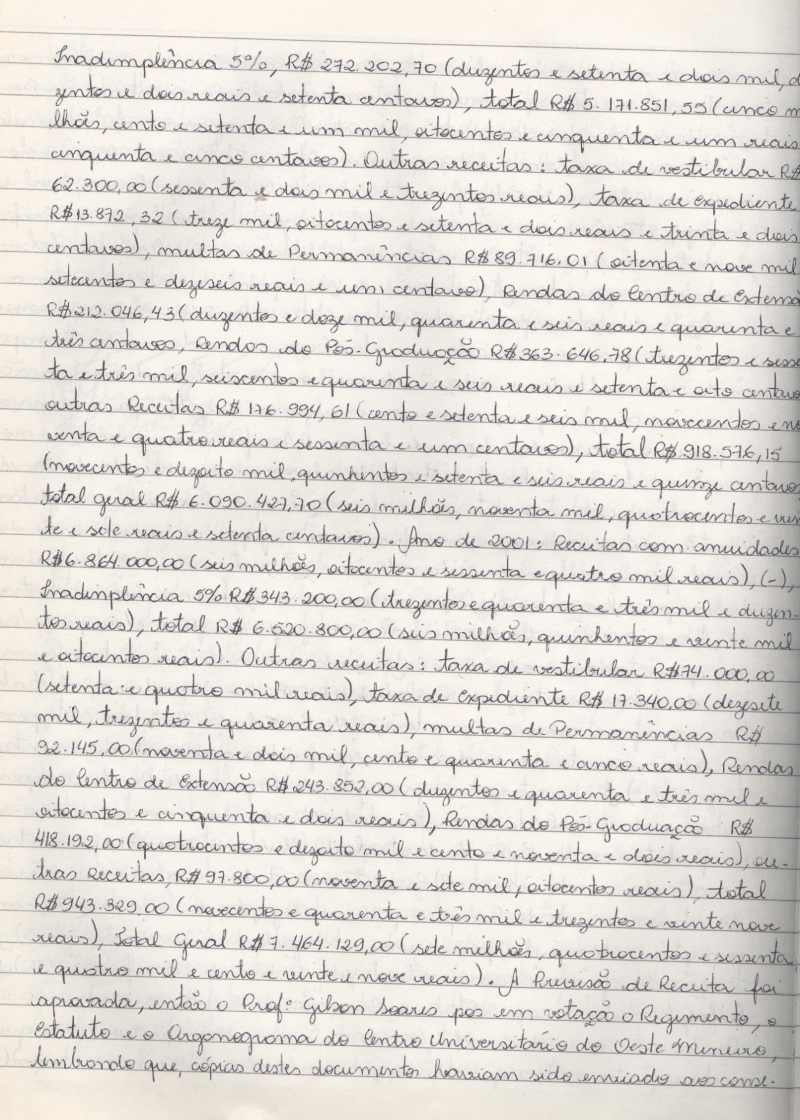 Inadimplência 5%, R$ 272.202,70 (duzentos e setenta e dois mil, d
zentos e dois reais e setenta centavos), total R$ 5.171.851,55 (cinco m
lhões, cento e setenta e um mil, oitocentos e cinquenta e um reais
cinquenta e cinco centavos). Outras receitas: taxa de vestibular R$
62.300,00 (sessenta e dois mil e trezentos reais), taxa de expediente
R$ 13.872,32 (treze mil, oitocentos e setenta e dois reais e trinta e dois
centavos), multas de Permanências R$ 89.716,01 (oitenta e nove mil
setecentos e dezeseis reais e um centavo), Rendas do Centro de Extensã
R$ 212.046,43 (duzentos e doze mil, quarenta e seis reais e quarenta e
três centavos, Rendas do Pós-Graduação R$ 363.646,78 (trezentos e sesse
ta e três mil, seiscentos e quarenta e seis reais e setenta e oito centavo
outras Receitas R$ 176.994,61 (cento e setenta e seis mil, novecentos e no
venta e quatro reais e sessenta e um centavos), total R$ 918.576,15
(novecentos e dezoito mil, quinhentos e setenta e seis reais e quinze centavos
total geral R$ 6.090.427,70 (seis milhões, noventa mil, quatrocentos e vin
te e sete reais e setenta centavos). Ano de 2001: Receitas com anuidades
R$ 6.864.000,00 (seis milhões, oitocentos e sessenta e quatro mil reais), (-),
Inadimplência 5% R$ 343.200,00 (trezentos e quarenta e três mil e duzen-
tos reais), total R$ 6.520.800,00 (seis milhões, quinhentos e vinte mil
e oitocentos reais). Outras receitas: taxa de vestibular R$ 74.000,00
(setenta e quatro mil reais), taxa de expediente R$ 17.340,00 (dezesete
mil, trezentos e quarenta reais), multas de Permanências R$
92.145,00 (noventa e dois mil, cento e quarenta e cinco reais), Rendas
do Centro de Extensão R$ 243.852,00 (duzentos e quarenta e três mil e
oitocentos e cinquenta e dois reais), Rendas do Pós-Graduação R$
418.192,00 (quatrocentos e dezoito mil e cento e noventa e dois reais), ou-
tras Receitas, R$ 97.800,00 (noventa e sete mil, oitocentos reais), total
R$ 943.329,00 (novecentos e quarenta e três mil e trezentos e vinte nove
reais), Total Geral R$ 7.464.129,00 (sete milhões, quatrocentos e sessenta
e quatro mil e cento e vinte e nove reais). A Previsão de Receita foi
aprovada, então o Profº Gilson Soares pos em votação o Regimento, o
Estatuto e o Organograma do Centro Universitário do Oeste Mineiro,
lembrando que, cópias destes documentos haviam sido enviado aos conse-